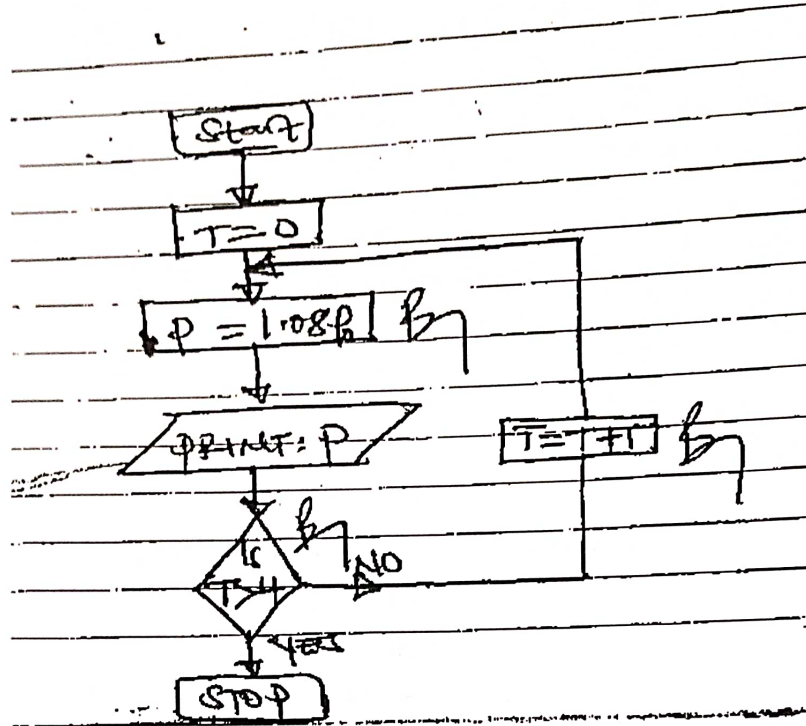 Start
T = 0
P = 1.08P₀
B1
PRINT: P
T = T + 1
B1
B1
Is
NO
YES
STOP